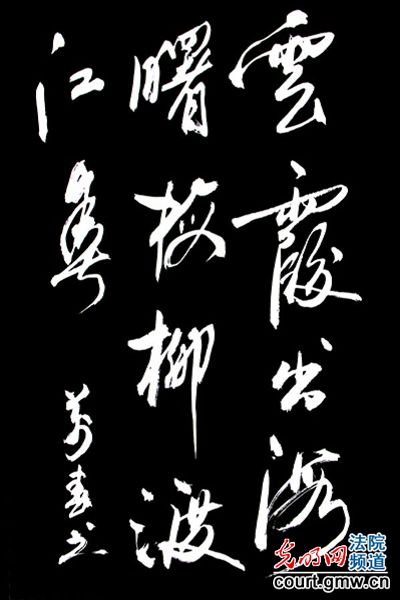 雲霞出海
曙梅柳渡
江春
春书
光明网
法院
频道
court.gmw.cn